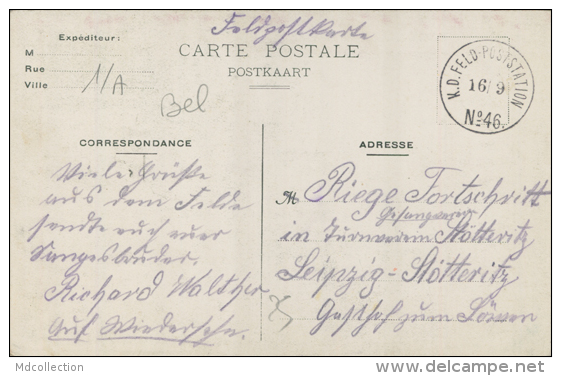 Feldpostkarte
Expéditeur:
M
Rue
Ville
1/A
CARTE POSTALE
POSTKAART
Bel
K.D. FELD-POSTSTATION
16/9
No 46.
CORRESPONDANCE
Viele Grüße
aus dem Felde
sendte euch euer
Sangesbruder.
Richard Walther
Auf Wiedersehn.
ADRESSE
An Riege Fortschritt
Gesangverein
in Turnverein Stötteritz
Leipzig-Stötteritz
Gasthof zum Löwen
Mdcollection
www.delcampe.net